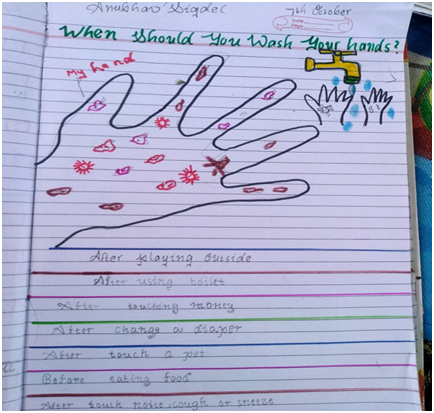 Anubhav Sigdel
7th October
When Should You Wash Your hands?
My hand
After playing outside
After using toilet
After touching money
After change a diaper
After touch a pet
Before eating food
After touch noise, cough or sneeze